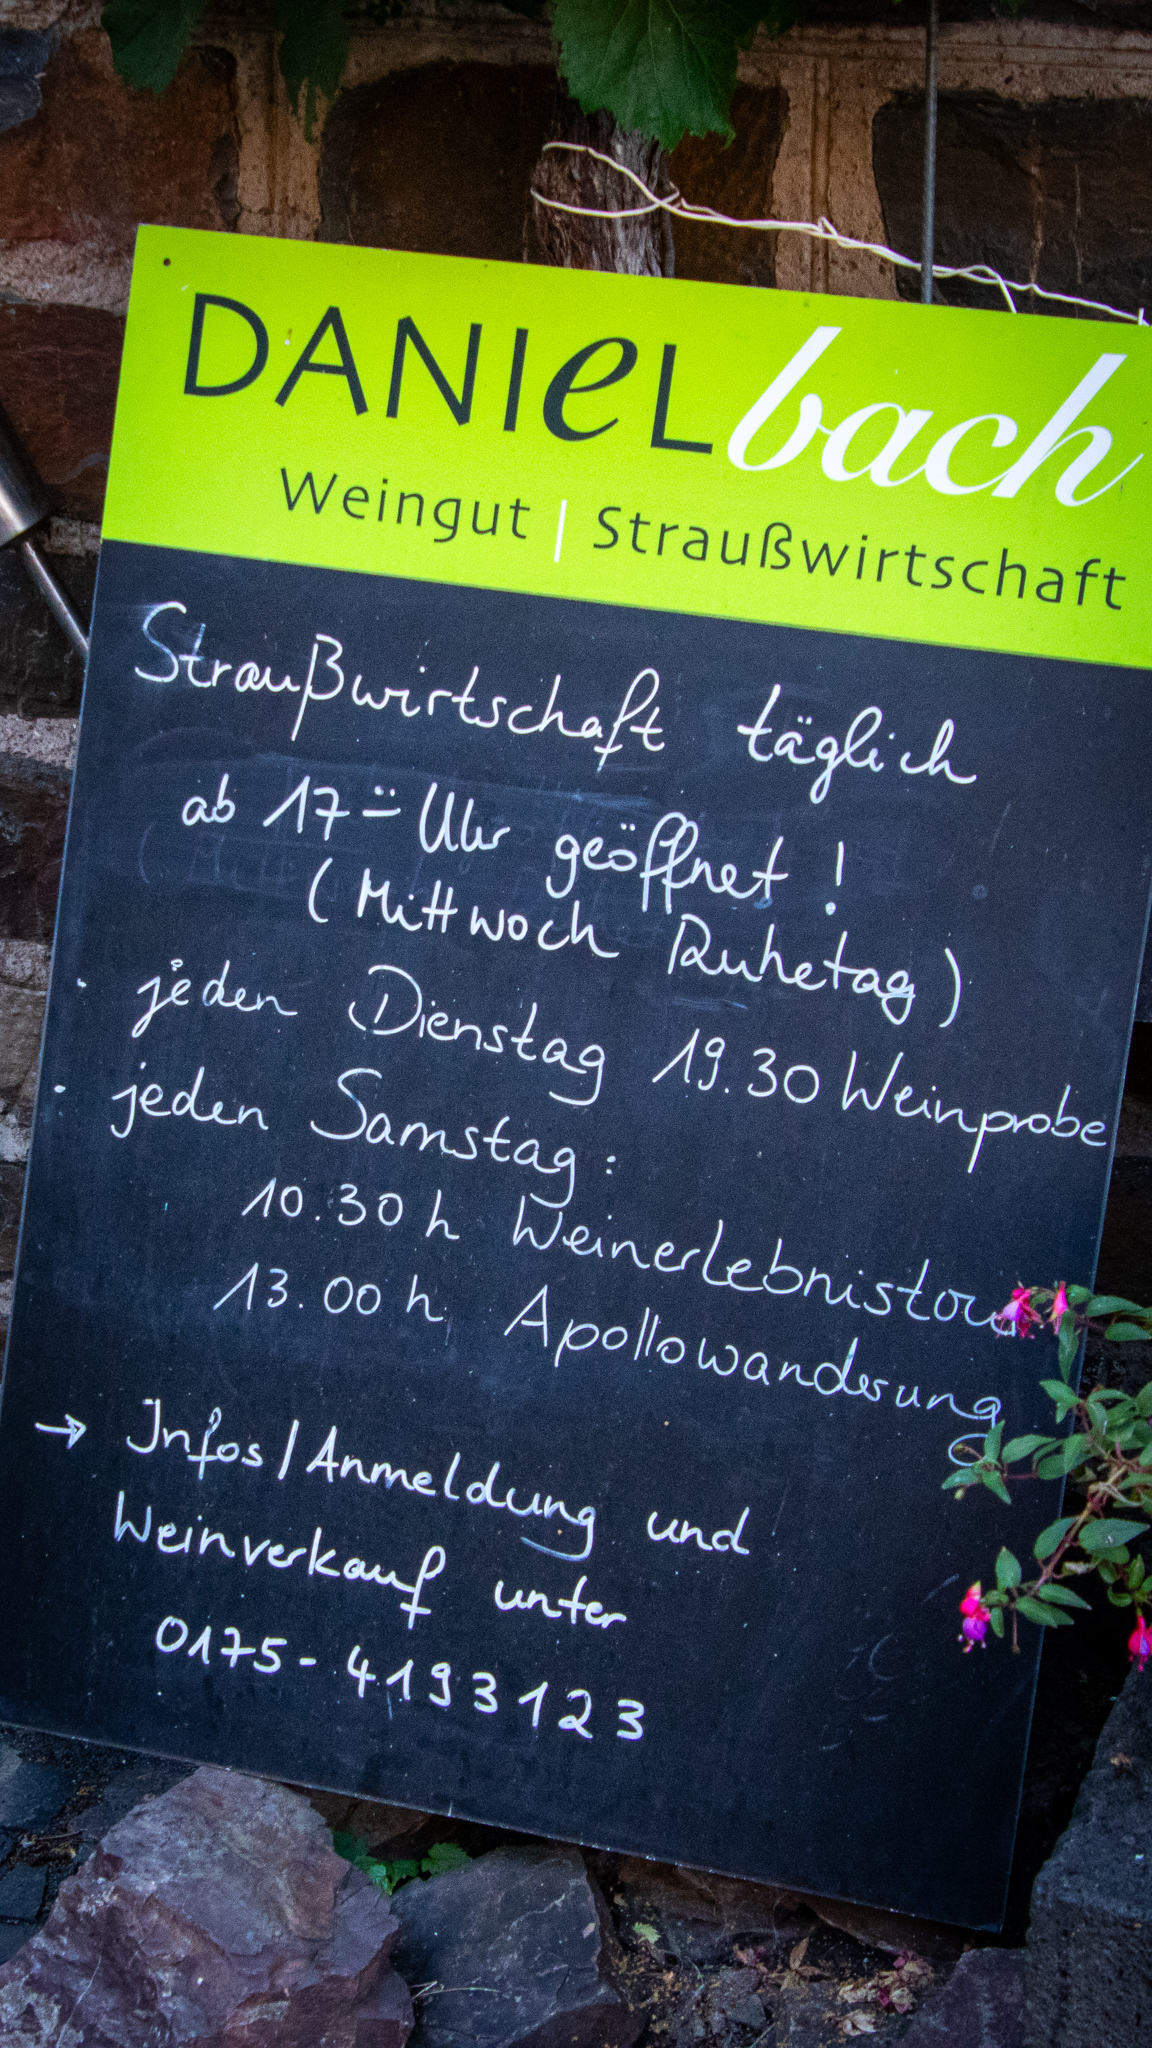 DANIeL bach
Weingut | Straußwirtschaft
Straußwirtschaft täglich
ab 17 Uhr geöffnet!
(Mittwoch Ruhetag)
· jeden Dienstag 19.30 Weinprobe
· jeden Samstag:
10.30 h Weinerlebnistour
13.00 h Apollowanderung
→ Infos/Anmeldung und
Weinverkauf unter
0175-4193123